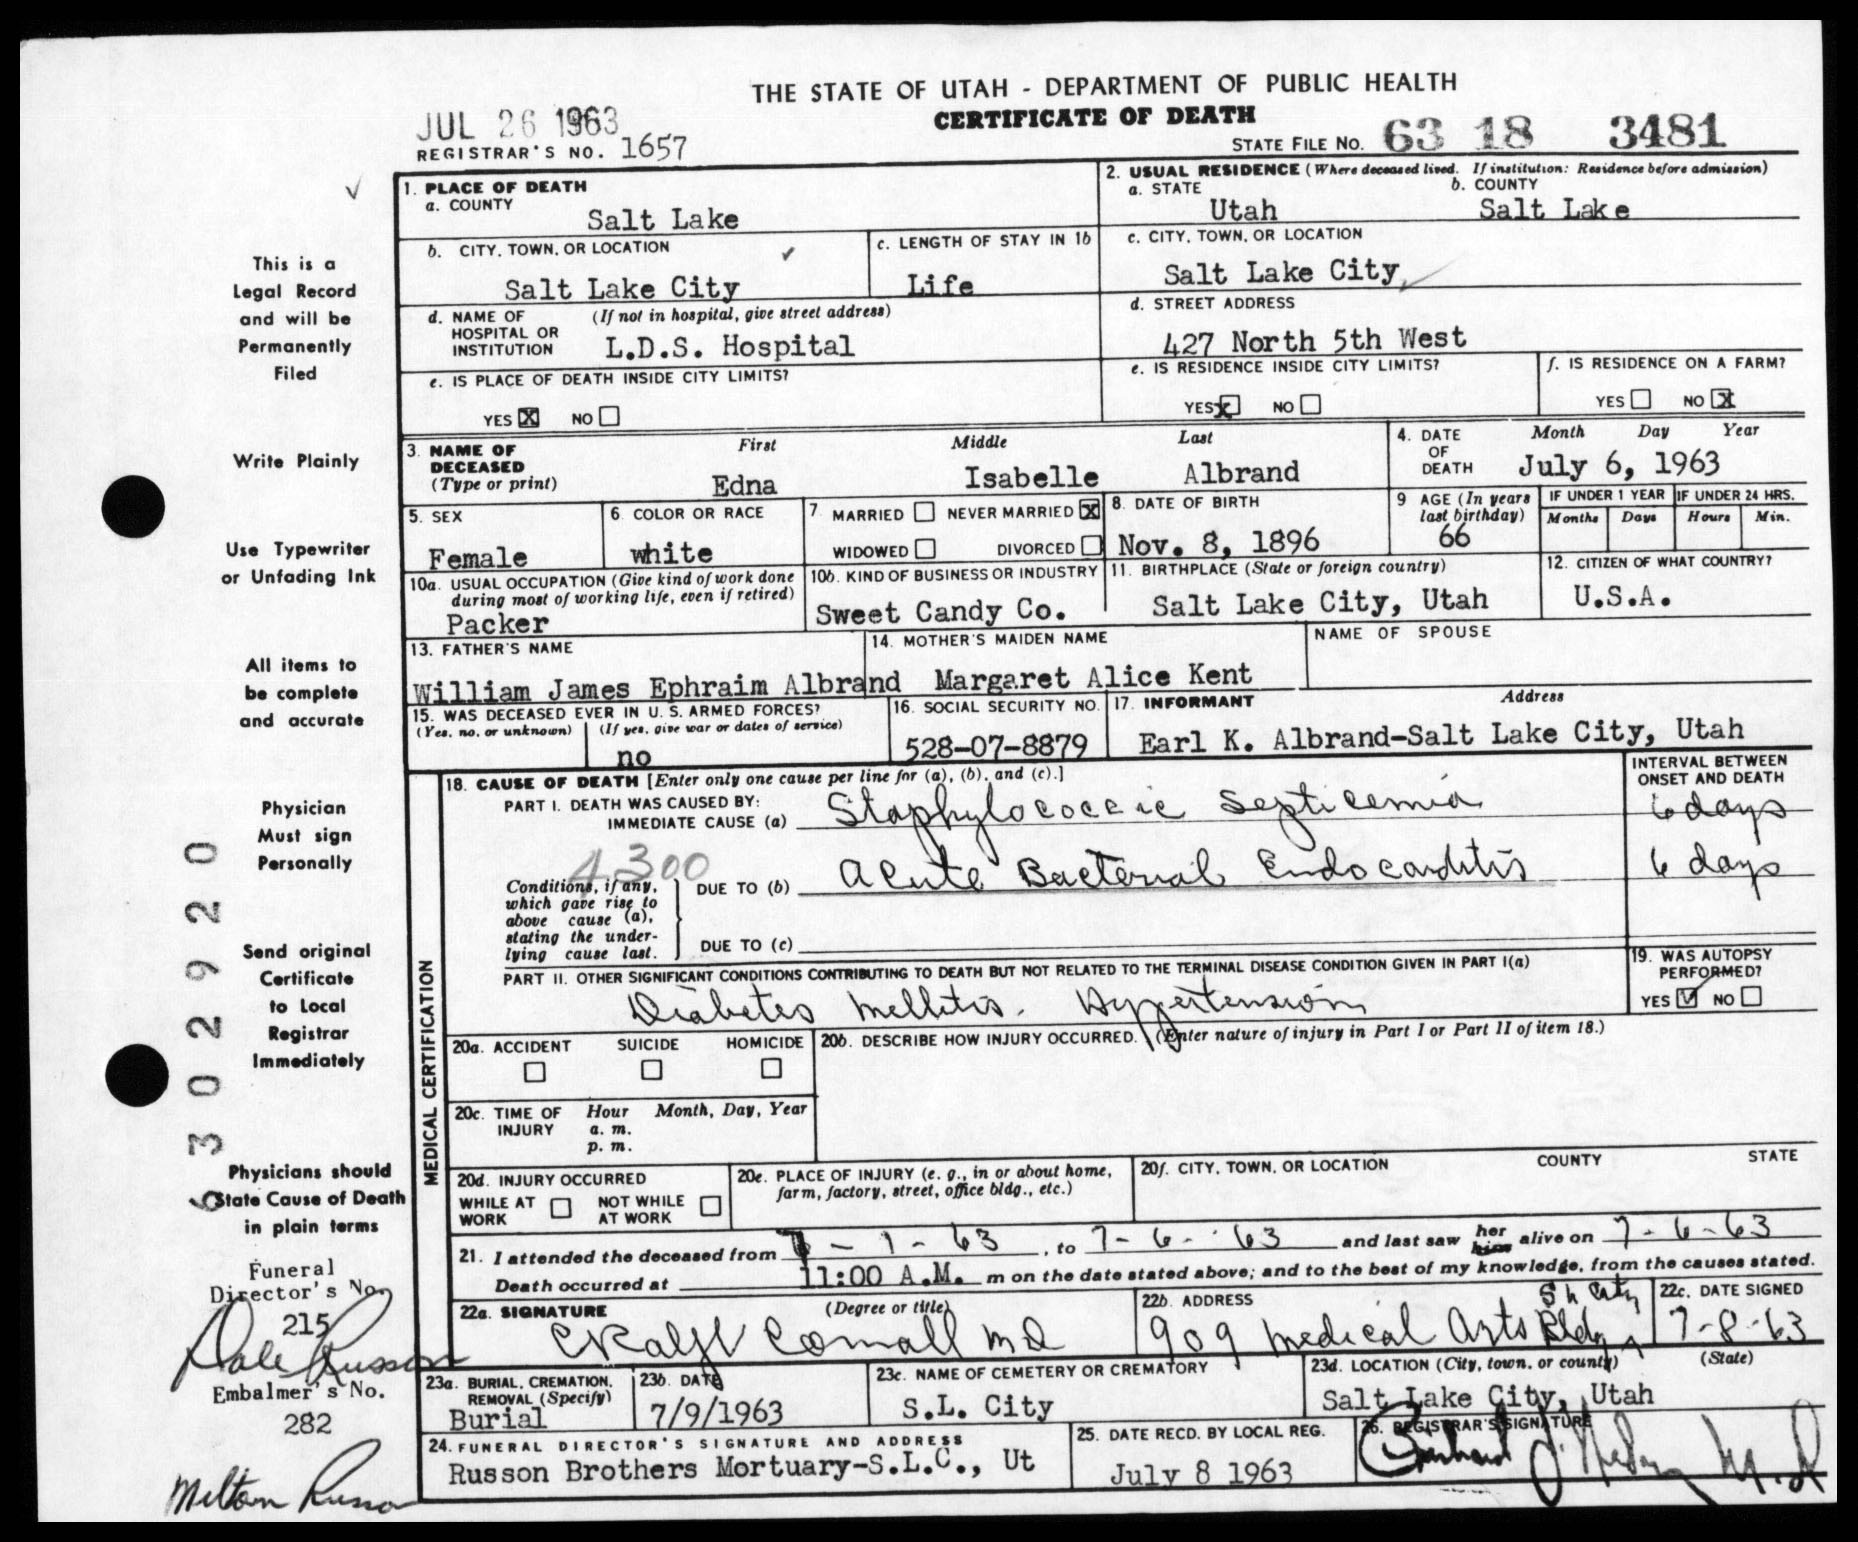 THE STATE OF UTAH - DEPARTMENT OF PUBLIC HEALTH
CERTIFICATE OF DEATH
JUL 26 1963
REGISTRAR'S NO. 1657
STATE FILE NO. 63 18 3481
1. PLACE OF DEATH
a. COUNTY
Salt Lake
2. USUAL RESIDENCE (Where deceased lived. If institution: Residence before admission)
a. STATE b. COUNTY
Utah Salt Lake
b. CITY, TOWN, OR LOCATION
Salt Lake City
c. LENGTH OF STAY IN 1b
Life
c. CITY, TOWN, OR LOCATION
Salt Lake City
d. NAME OF (If not in hospital, give street address)
HOSPITAL OR
INSTITUTION L.D.S. Hospital
d. STREET ADDRESS
427 North 5th West
e. IS PLACE OF DEATH INSIDE CITY LIMITS?
YES X NO
e. IS RESIDENCE INSIDE CITY LIMITS?
YES X NO
f. IS RESIDENCE ON A FARM?
YES NO X
3. NAME OF First Middle Last
DECEASED
(Type or print) Edna Isabelle Albrand
4. DATE Month Day Year
OF
DEATH July 6, 1963
5. SEX
Female
6. COLOR OR RACE
white
7. MARRIED NEVER MARRIED X
WIDOWED DIVORCED
8. DATE OF BIRTH
Nov. 8, 1896
9 AGE (In years
last birthday)
66
IF UNDER 1 YEAR IF UNDER 24 HRS.
Months Days Hours Min.
10a. USUAL OCCUPATION (Give kind of work done
during most of working life, even if retired)
Packer
10b. KIND OF BUSINESS OR INDUSTRY
Sweet Candy Co.
11. BIRTHPLACE (State or foreign country)
Salt Lake City, Utah
12. CITIZEN OF WHAT COUNTRY?
U.S.A.
13. FATHER'S NAME
William James Ephraim Albrand
14. MOTHER'S MAIDEN NAME
Margaret Alice Kent
NAME OF SPOUSE
15. WAS DECEASED EVER IN U. S. ARMED FORCES?
(Yes, no, or unknown) (If yes, give war or dates of service)
no
16. SOCIAL SECURITY NO.
528-07-8879
17. INFORMANT Address
Earl K. Albrand-Salt Lake City, Utah
MEDICAL CERTIFICATION
18. CAUSE OF DEATH [Enter only one cause per line for (a), (b), and (c).]
INTERVAL BETWEEN
ONSET AND DEATH
PART I. DEATH WAS CAUSED BY:
IMMEDIATE CAUSE (a) Staphylococcic Septicemia 6 days
4300
Conditions, if any,
which gave rise to
above cause (a),
stating the under-
lying cause last.
DUE TO (b) Acute Bacterial Endocarditis 6 days
DUE TO (c)
PART II. OTHER SIGNIFICANT CONDITIONS CONTRIBUTING TO DEATH BUT NOT RELATED TO THE TERMINAL DISEASE CONDITION GIVEN IN PART I(a)
Diabetes Mellitis. Hypertension
19. WAS AUTOPSY
PERFORMED?
YES NO
20a. ACCIDENT SUICIDE HOMICIDE
20b. DESCRIBE HOW INJURY OCCURRED. (Enter nature of injury in Part I or Part II of item 18.)
20c. TIME OF Hour Month, Day, Year
INJURY a. m.
p. m.
20d. INJURY OCCURRED
WHILE AT NOT WHILE
WORK AT WORK
20e. PLACE OF INJURY (e. g., in or about home,
farm, factory, street, office bldg., etc.)
20f. CITY, TOWN, OR LOCATION COUNTY STATE
21. I attended the deceased from 7-1-63, to 7-6-63 and last saw her him alive on 7-6-63
Death occurred at 11:00 A.M. m on the date stated above; and to the best of my knowledge, from the causes stated.
22a. SIGNATURE (Degree or title)
C Ralph Cornall MD
22b. ADDRESS
909 Medical Arts Bldg
22c. DATE SIGNED
7-8-63
23a. BURIAL, CREMATION,
REMOVAL (Specify)
Burial
23b. DATE
7/9/1963
23c. NAME OF CEMETERY OR CREMATORY
S.L. City
23d. LOCATION (City, town, or county) (State)
Salt Lake City, Utah
24. FUNERAL DIRECTOR'S SIGNATURE AND ADDRESS
Russon Brothers Mortuary-S.L.C., Ut
25. DATE RECD. BY LOCAL REG.
July 8 1963
26. REGISTRAR'S SIGNATURE
This is a
Legal Record
and will be
Permanently
Filed
Write Plainly
Use Typewriter
or Unfading Ink
All items to
be complete
and accurate
Physician
Must sign
Personally
Send original
Certificate
to Local
Registrar
Immediately
Physicians should
State Cause of Death
in plain terms
Funeral
Director's No.
215
Dale Russon
Embalmer's No.
282
Milton Russon
6302920